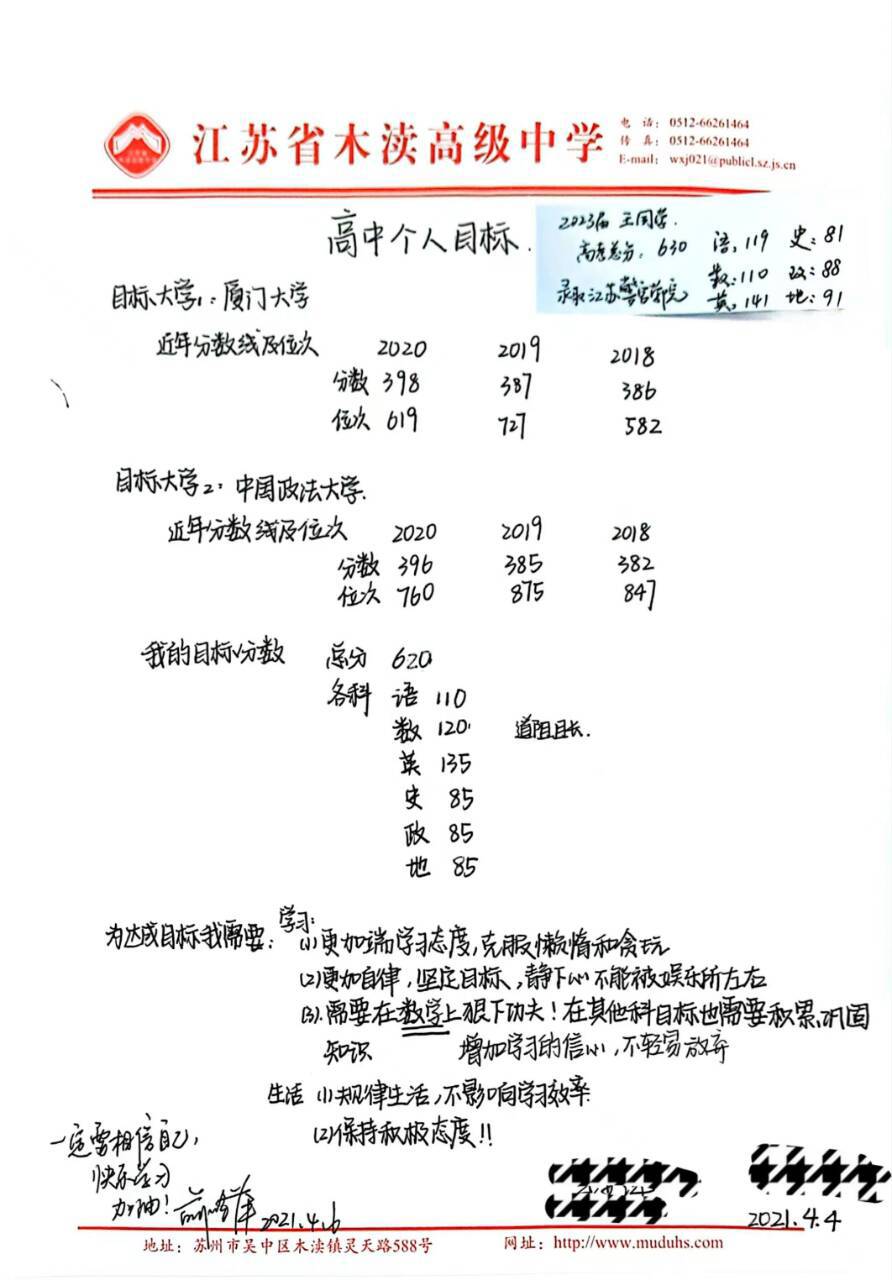 江苏省木渎高级中学
电 话: 0512-66261464
传 真: 0512-66261464
E-mail: wxj021@publicl.sz.js.cn
高中个人目标.
2023届 王同学.
高考总分: 630 语: 119 史: 81
数: 110 政: 88
录取江苏警官学院 英: 141 地: 91
目标大学1: 厦门大学
近年分数线及位次 2020 2019 2018
分数 398 387 386
位次 619 727 582
目标大学2: 中国政法大学.
近年分数线及位次 2020 2019 2018
分数 396 385 382
位次 760 875 847
我的目标分数 总分 620
各科 语 110
数 120 道阻且长.
英 135
史 85
政 85
地 85
为达成目标我需要: 学习:
(1)更加端学习态度,克服懒惰和贪玩
(2)更加自律,坚定目标,静下心不能被娱乐所左右
(3).需要在数学上狠下功夫!在其他科目标也需要积累、巩固
知识 增加学习的信心,不轻易放弃
生活 (1)规律生活,不影响学习效率
(2)保持积极态度!!
一定要相信自己,
快乐学习
加油!
2021.4.6
2021.4.4
地址: 苏州市吴中区木渎镇灵天路588号 网址: http://www.muduhs.com